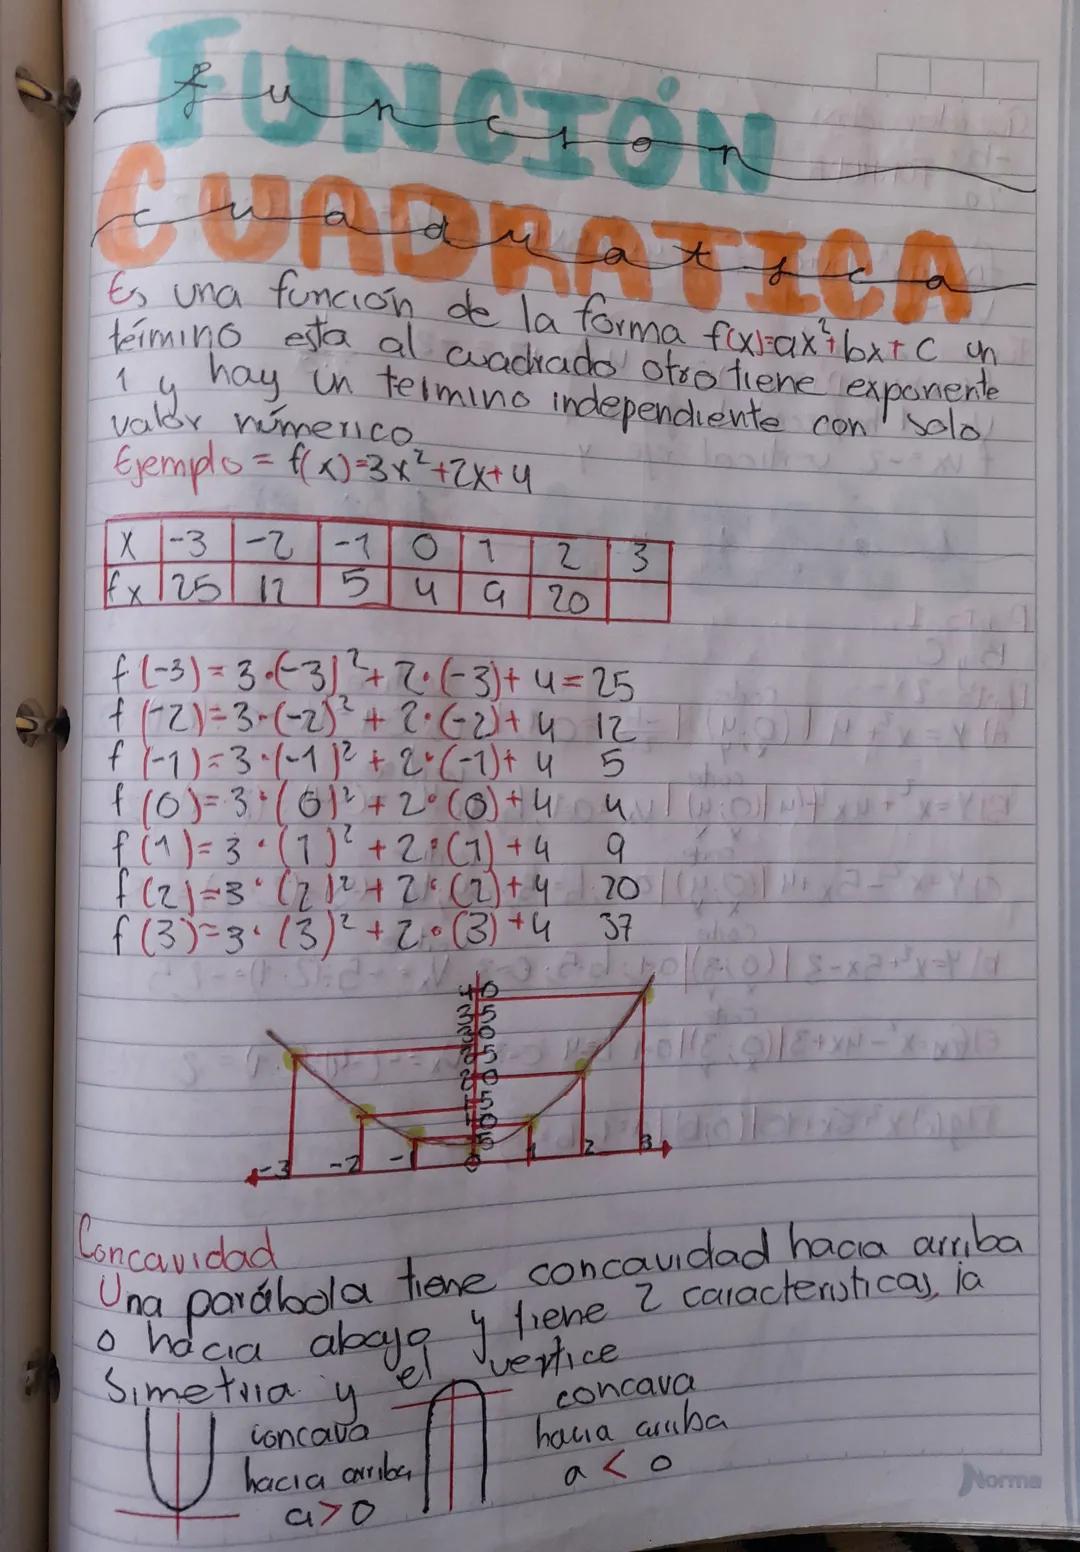 FUNCIÓN
función
CUADRATICA
cuadratica
Es una función de la forma f(x)=ax²+bx+c un
término esta al cuadrado otro tiene exponente
1 y hay un termino independiente con solo
valor númerico
Ejemplo = f(x)=3x²+2x+4
x -3 -2 -1 0 1 2 3
fx 25 12 5 4 9 20
f(-3)=3·(-3)²+2·(-3)+4=25
f(-2)=3·(-2)²+2·(-2)+4 12
f(-1)=3·(-1)²+2·(-1)+4 5
f(0)=3·(0)²+2·(0)+4 4
f(1)=3·(1)²+2·(1)+4 9
f(2)=3·(2)²+2·(2)+4 20
f(3)=3·(3)²+2·(3)+4 37
40
35
30
25
20
15
10
5
-3 -2 -1 0 1 2 3
Concavidad
Una parábola tiene concavidad hacia arriba
o hacia abajo y tiene 2 caracteristicas, la
Simetria y el vertice
concava
hacia arriba
a>0
concava
hacia arriba
a<0
Norma